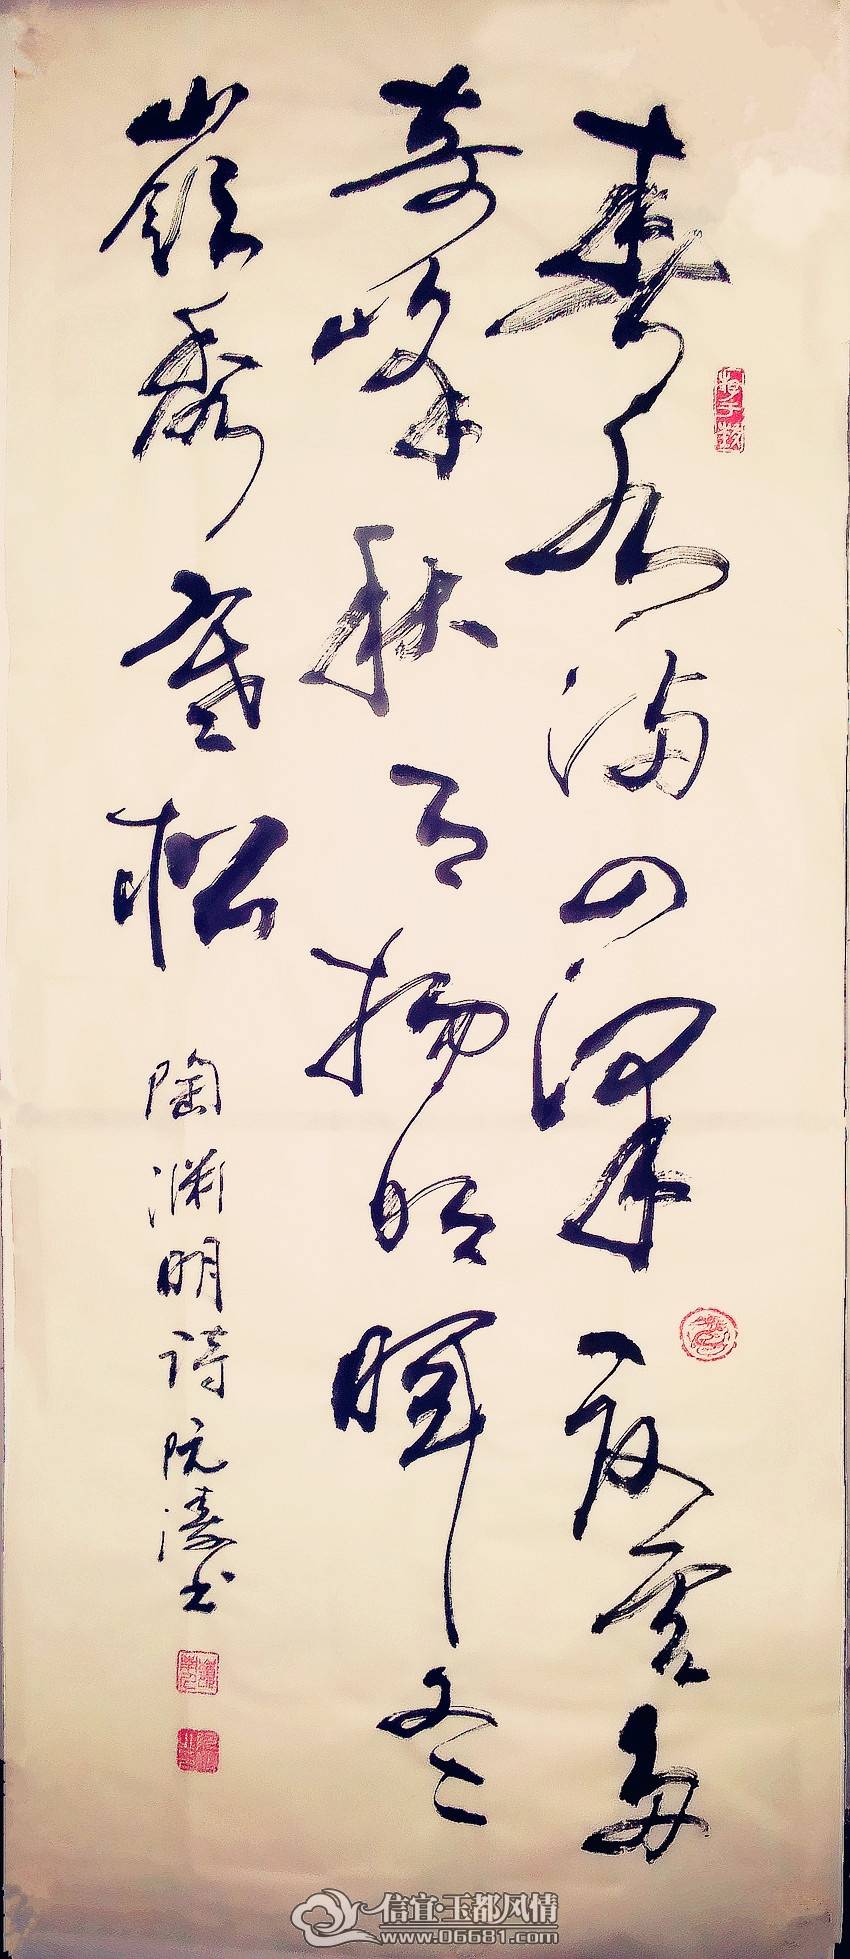 春水满四泽夏云多
奇峰秋月扬明晖冬
岭秀寒松
陶渊明诗 阮凌书
信宜·玉都风情
www.06681.com